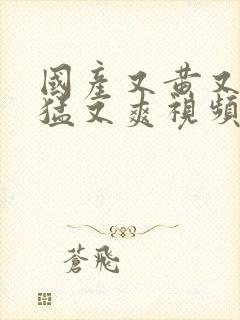 國產又黃又
猛又爽視頻
蒼飛